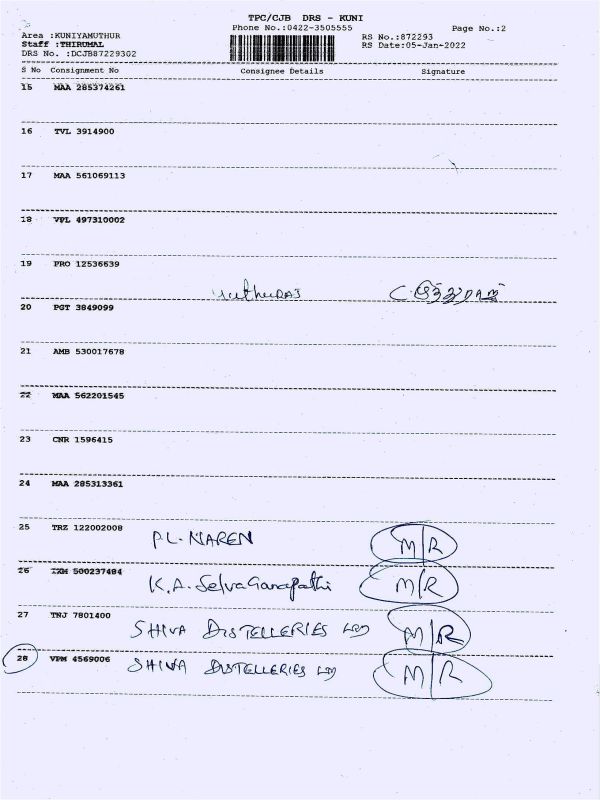 TPC/CJB DRS - KUNI
Phone No.:0422-3505555 Page No.:2
Area :KUNIYAMUTHUR RS No.:872293
Staff :THIRUMAL RS Date:05-Jan-2022
DRS No. :DCJB87229302
S No Consignment No Consignee Details Signature
15 MAA 285374261
16 TVL 3914900
17 MAA 561069113
18 VPL 497310002
19 PRO 12536639
20 PGT 3849099
21 AMB 530017678
22 MAA 562201545
23 CNR 1596415
24 MAA 285313361
25 TRZ 122002008
PL. NAREN M/R
26 500237484
K.A. SelvaGanapathi M/R
27 TNJ 7801400
SHIVA DISTELLERIES LTD M/R
28 VPM 4569006
SHIVA DISTELLERIES LTD M/R